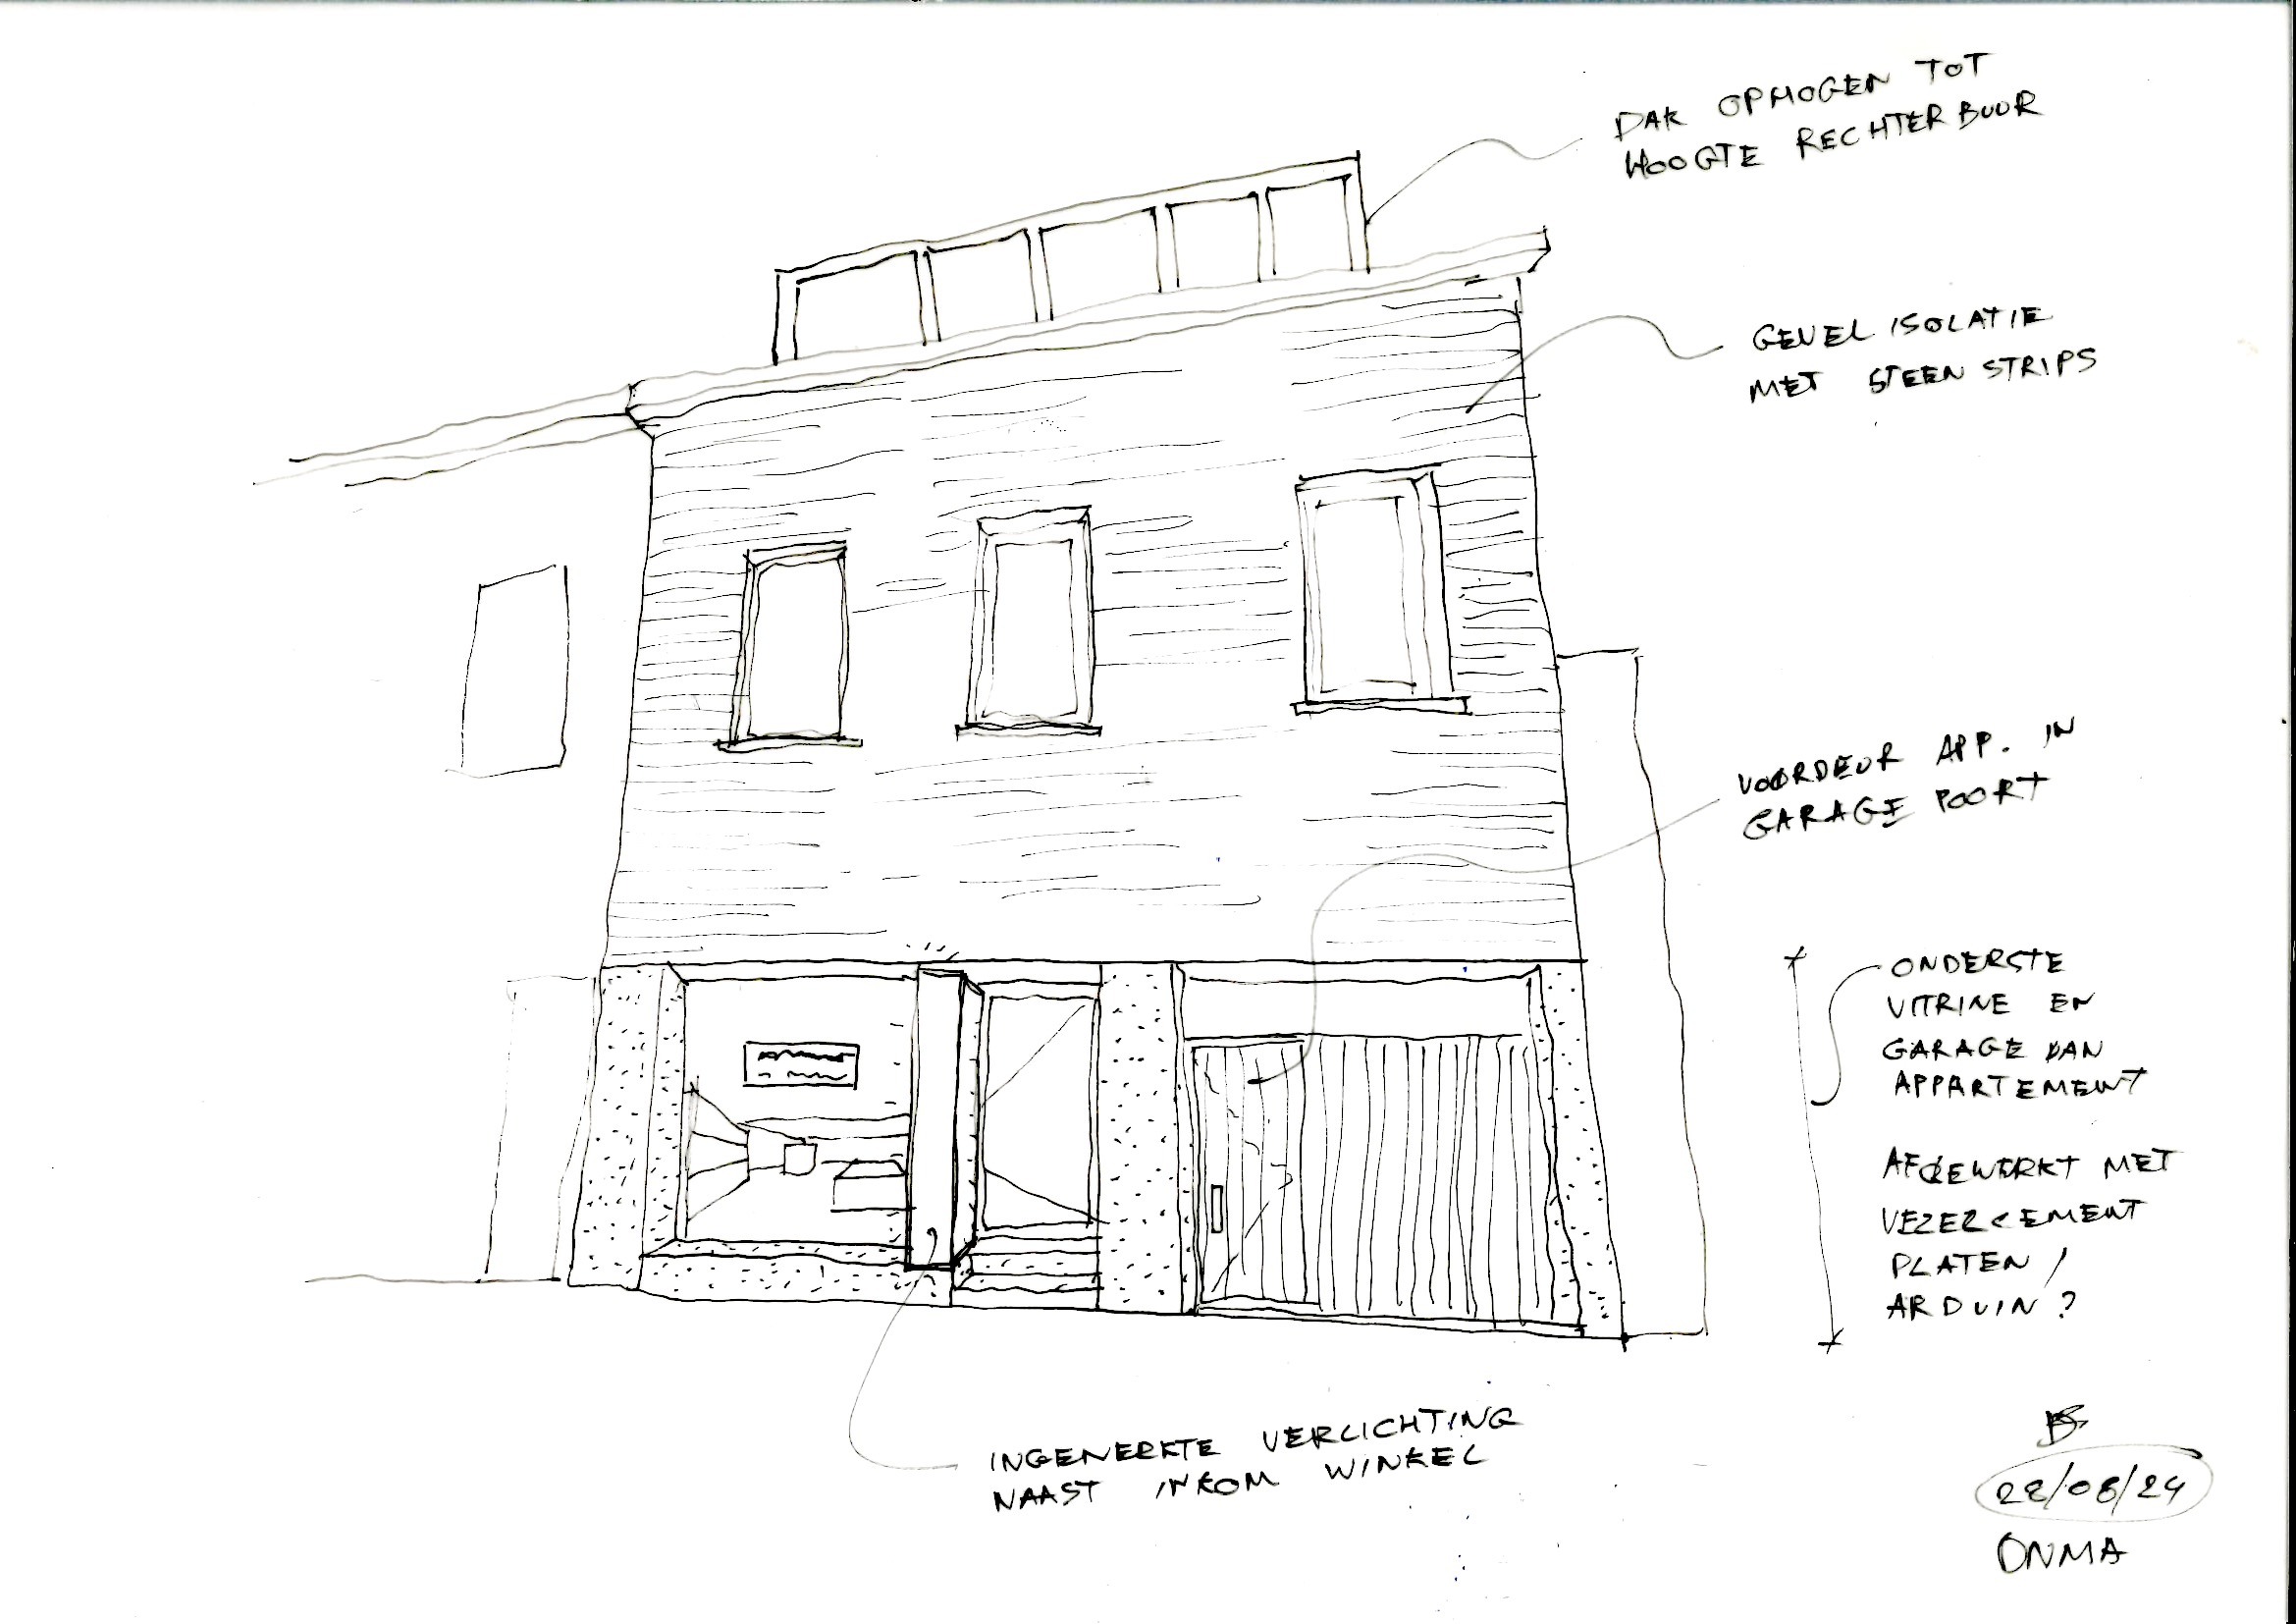 DAK OPHOGEN TOT
HOOGTE RECHTERBUUR
GEVELISOLATIE
MET STEENSTRIPS
VOORDEUR APP. IN
GARAGE POORT
ONDERSTE
VITRINE EN
GARAGE VAN
APPARTEMENT
AFGEWERKT MET
VEZELCEMENT
PLATEN /
ARDUIN?
INGEWERKTE VERLICHTING
NAAST INKOM WINKEL
28/08/24
ONMA